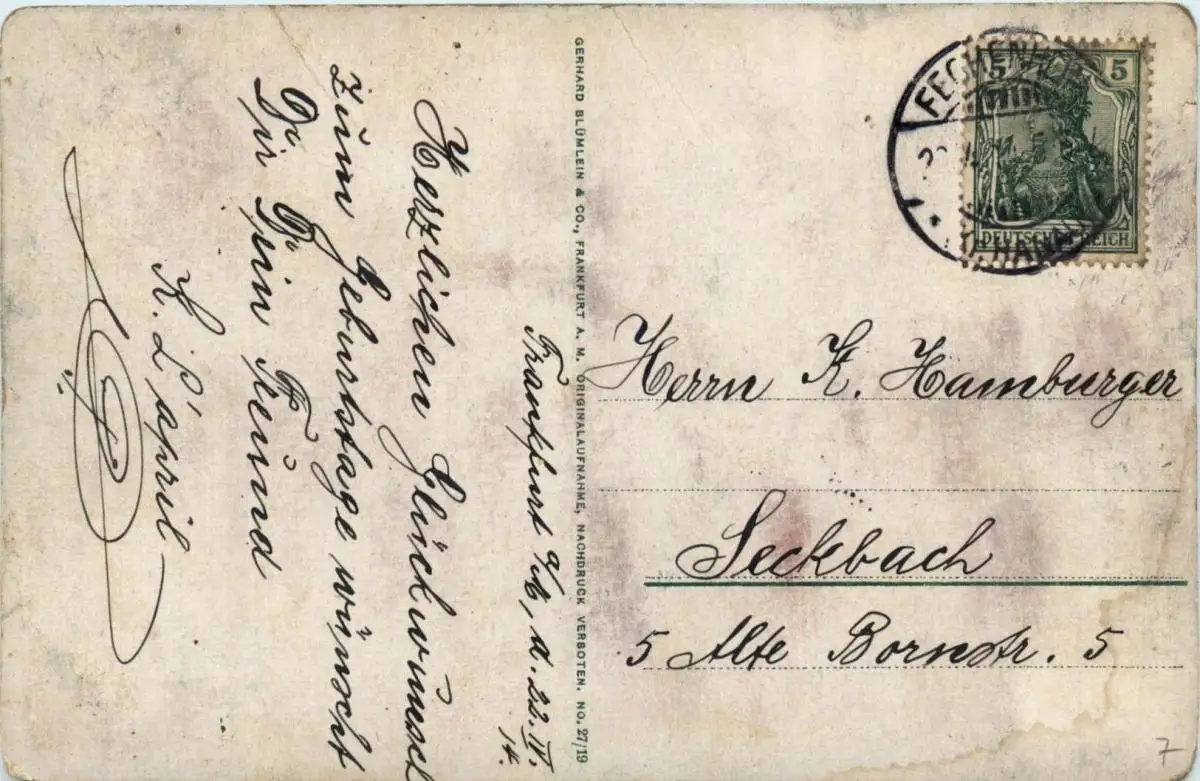 Frankfurt a/M, d. 22. IV.
14.
Herzlichen Glückwunsch
zum Geburtstage wünscht
Dir Dein Freund
K. L'april
GERHARD BLÜMLEIN & CO., FRANKFURT A. M. ORIGINALAUFNAHME, NACHDRUCK VERBOTEN. NO. 27/19
5 5
DEUTSCHES REICH
FECHENHEIM
Herrn K. Hamburger
Seckbach
5 Alte Bornstr. 5
7